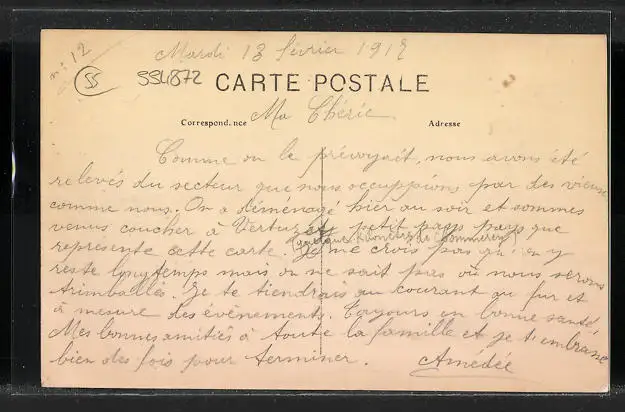 n: 12
Mardi 13 février 1917
55
554872
CARTE POSTALE
Correspondance
Ma Chérie
Adresse
Comme on le prévoyait, nous avons été
relevés du secteur que nous occuppions par des vieux
comme nous. On a déménagé hier au soir et sommes
venus coucher à petit pays que
(quelques kilomètres de Commercy)
représente cette carte. Je ne crois pas qu'on y
reste longtemps mais on ne sait pas où nous serons
trimballés. Je te tiendrais au courant au fur et
à mesure des événements. Toujours en bonne santé,
Mes bonnes amitiés à toute la famille et je t'embrasse
bien des fois pour terminer. Amédée